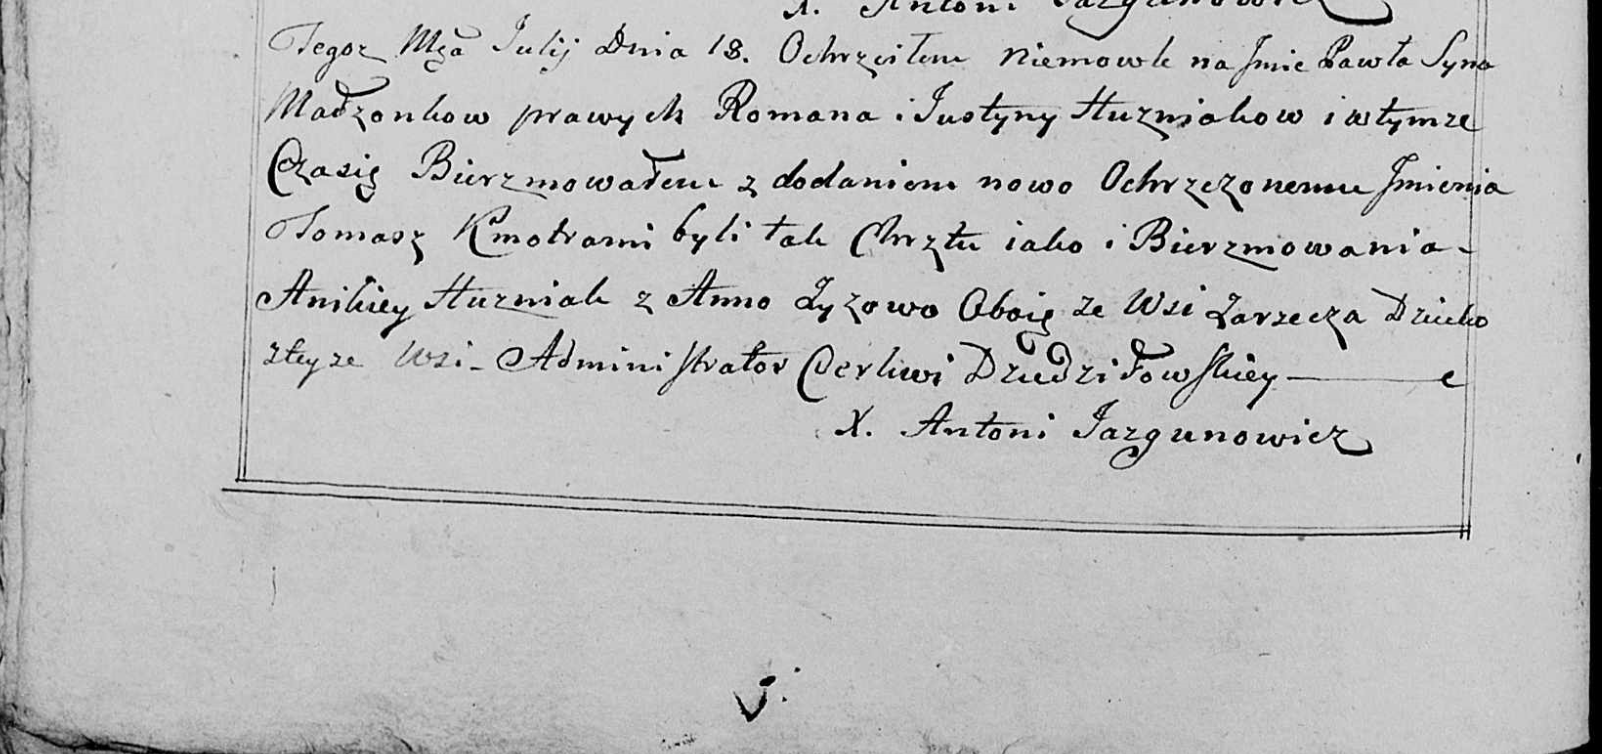 X. Antoni Jazgunowicz
Tegoz Mca Julij Dnia 18. Ochrzcilem Niemowle na Jmie Pawła Syna
Małzonkow prawych Romana i Justyny Huzniakow i wtymze
Czasię Bierzmowałem z dodaniem nowo Ochrzczonemu Jmienia
Tomasz Kmotrami byli tak Chrztu iako i Bierzmowania -
Anikiey Huzniak z Anno Łyzowo Oboię ze Wsi Zarzecza Dziecko
zteyze Wsi - Administrator Cerkwi Dziedziłowskiey
X. Antoni Jazgunowicz